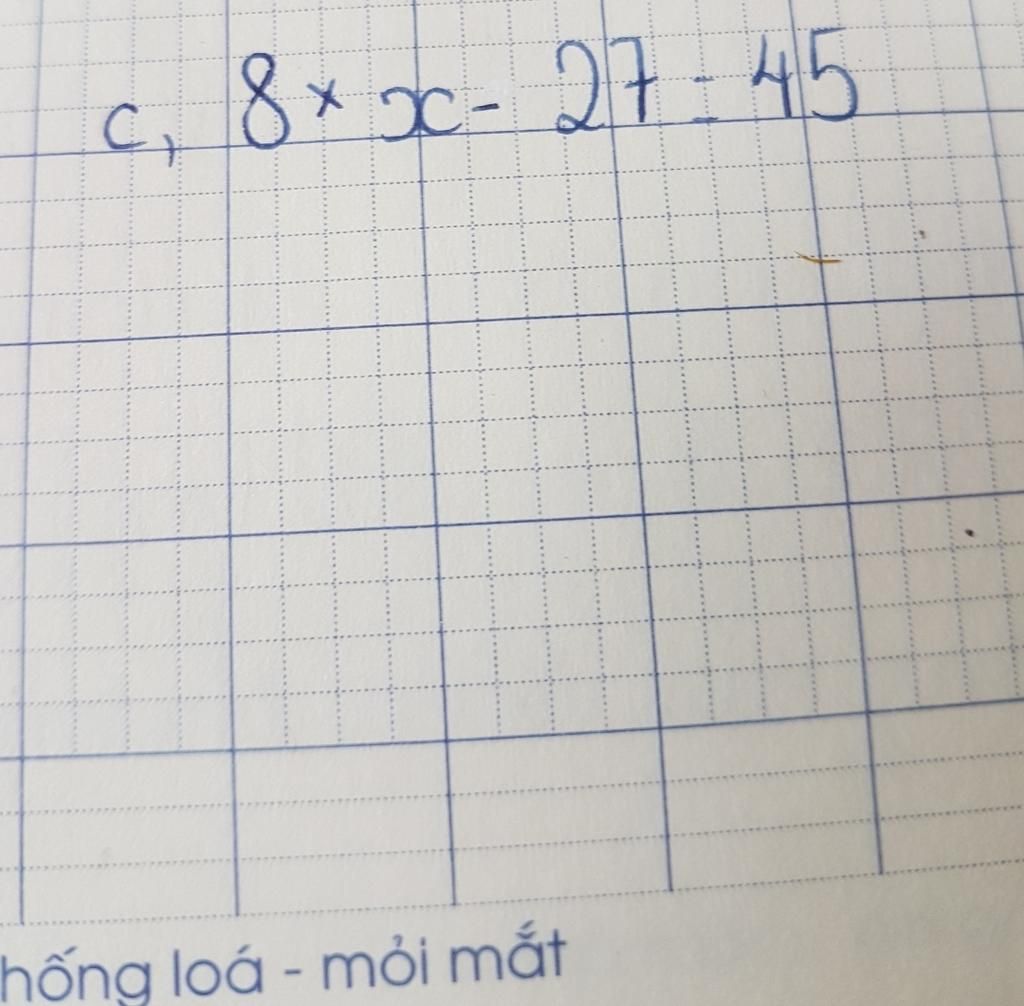 c, 8 × x - 27 = 45
hống loá - mỏi mắt